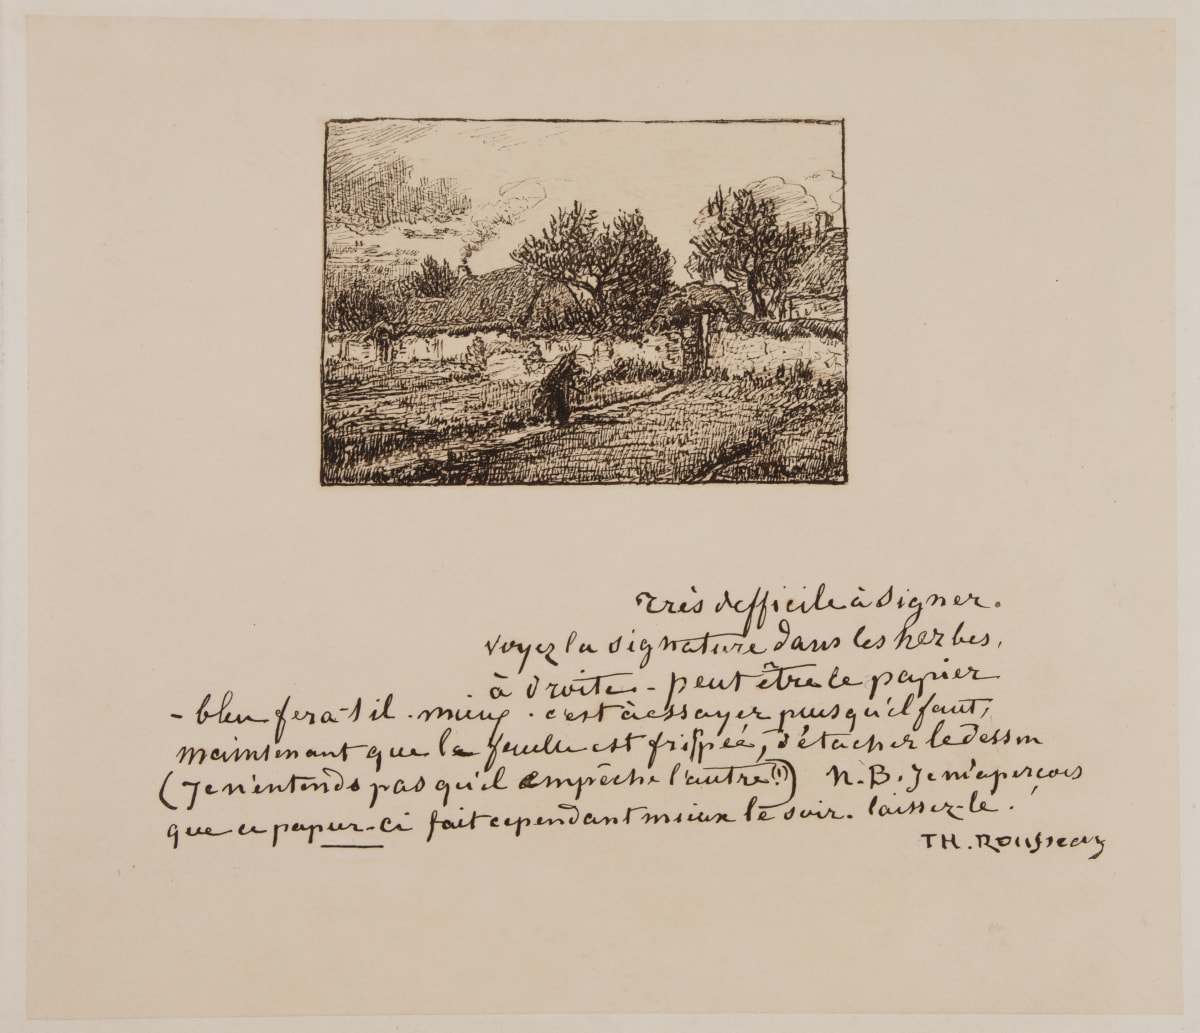 Très difficile à signer.
voyez la signature dans les herbes,
à droite - peut être le papier
- bleu fera-t il mieux. c'est à essayer puisqu'il faut,
maintenant que la feuille est frippée, détacher le dessin
(Je n'entends pas qu'il empêche l'autre!) N.B. Je m'aperçois
que ce papier-ci fait cependant mieux le soir. laissez-le!
TH. Rousseau